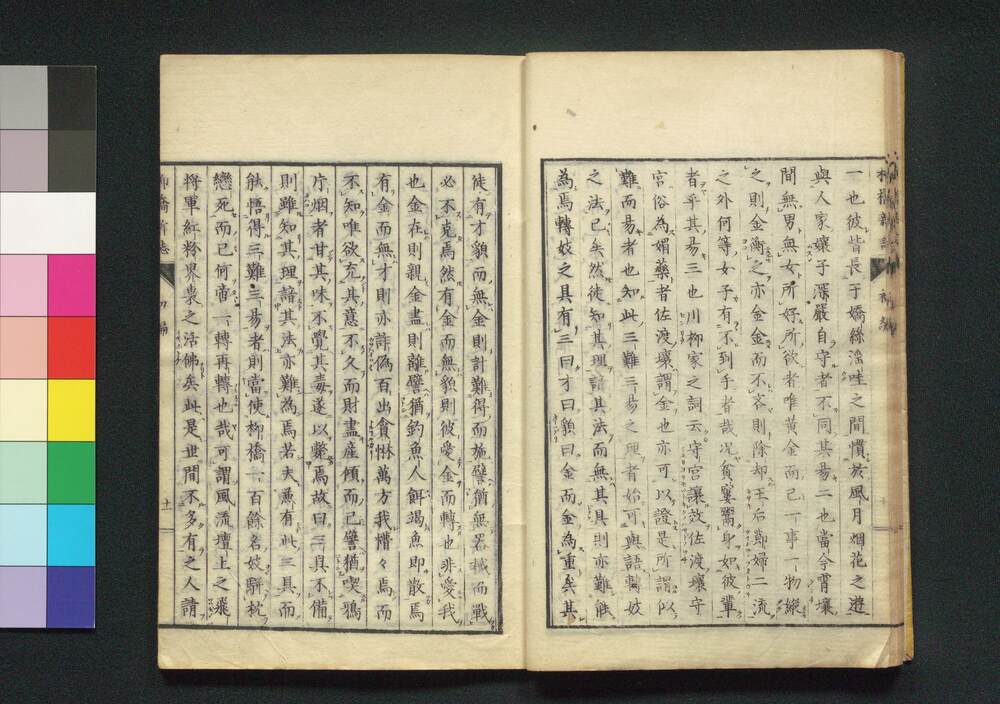 一也彼皆長于嬌絲滛哇之間慣於風月烟花之遊
與人家孃子深嚴自守者不同其易二也當今霄壤
間無男無女所好所欲者唯黃金而已一事一物縱
之則金衡之亦金金而不吝則除却王后節婦二流
之外何等女子有不到手者哉况貧窶鬻身如彼輩
者乎其易三也川柳家之詞云守宮讓效佐渡壤守
宮俗為媚藥者佐渡壤謂金也亦可以證是所謂似
難而易者也知此三難三易之理者始可與語轉妓
之法已矣然徒知其理諳其法而無其具則亦難能
為焉轉妓之具有三曰才曰貌曰金而金為重矣其
徒有才貌而無金則計難得而施譬猶無器械而戰
必不克焉然有金而無貌則彼愛金而轉也非愛我
也金在則親金盡則離譬猶釣魚人餌竭魚即散焉
有金而無才則亦詐偽百出貪惏萬方我懵々焉而
不知唯欲充其意不久而財盡産傾而已譬猶喫鴉
片烟者甘其味不覺其毒遂以斃焉故曰三具不備
則雖知其理諳其法亦難為焉若夫兼有此三具而
能悟得三難三易者則當使柳橋一百餘名妓駢枕
戀死而已何啻一轉再轉也哉可謂風流壇上之飛
將軍紅粉界裏之活佛矣此是世間不多有之人請
柳橋新志 初編 十一